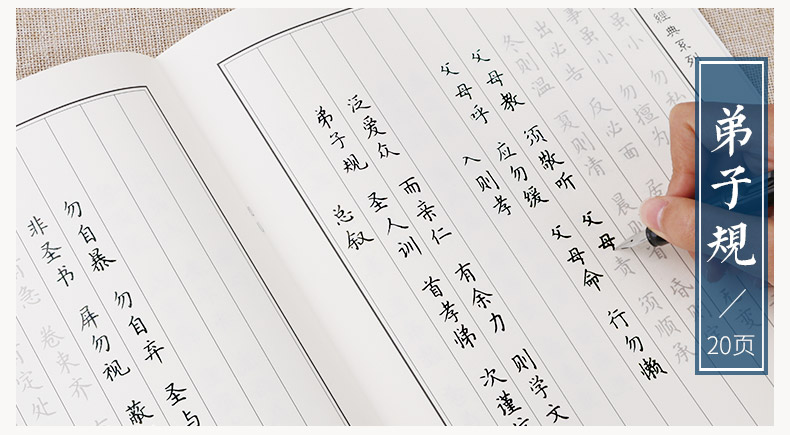 定处
有急 卷束齐
非圣书 屏勿视 蔽
勿自暴 勿自弃 圣与
总叙
弟子规 圣人训 首孝悌 次谨
泛爱众 而亲仁 有余力 则学文
入则孝
父母呼 应勿缓 父母命 行勿懒
父母教 须敬听 父母 责 须顺承
冬则温 夏则清 晨则 昏则
出必告 反必面 居
事虽小 勿擅为
虽小 勿私
經典系列
弟子規
20页